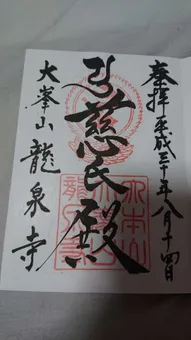 奉拝 平成三十年八月十四日
慈氏殿
大峯山龍泉寺